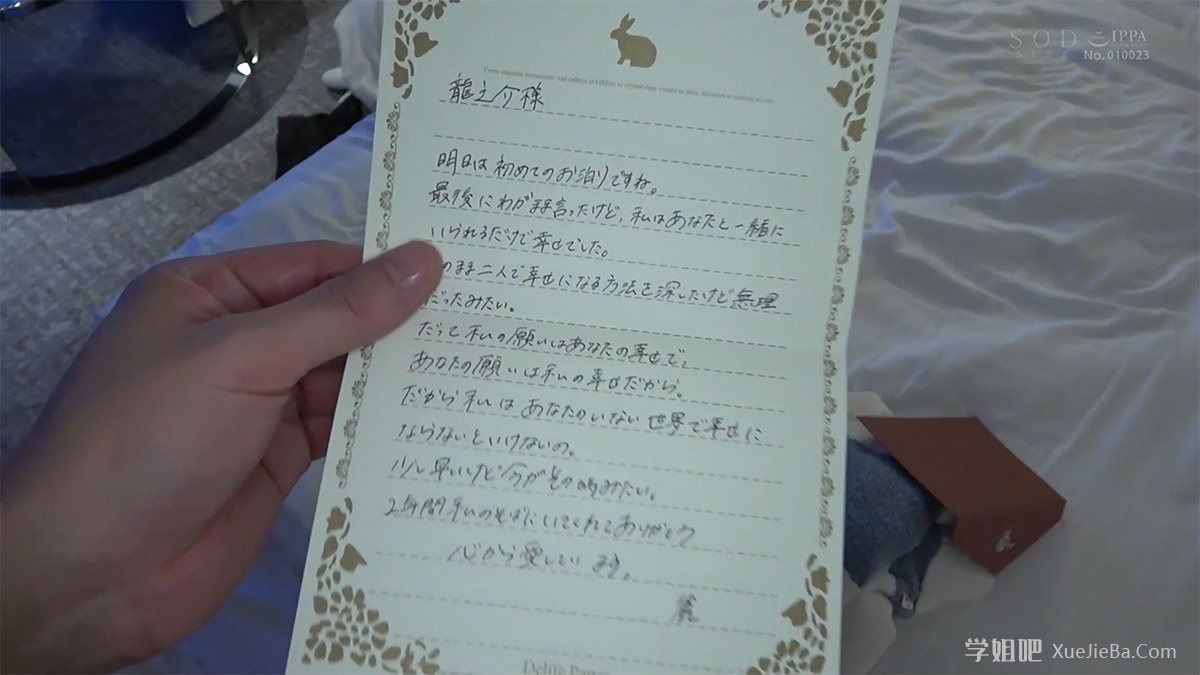 SOD
IPPA
No.010023
龍之介様
明日は初めてのお泊りですね。
最後にわがまま言ったけど、私はあなたと一緒に
いられるだけで幸せでした。
のまま二人で幸せになる方法を探したけど無理
だったみたい。
だって私の願いはあなたの幸せで、
あなたの願いは私の幸せだから。
だから私はあなたのいない世界で幸せに
ならないといけないの。
少し早いけど今がその時みたい。
2年間私のそばにいてくれてありがとう
心から愛しています。
学姐吧 XueJieBa.Com